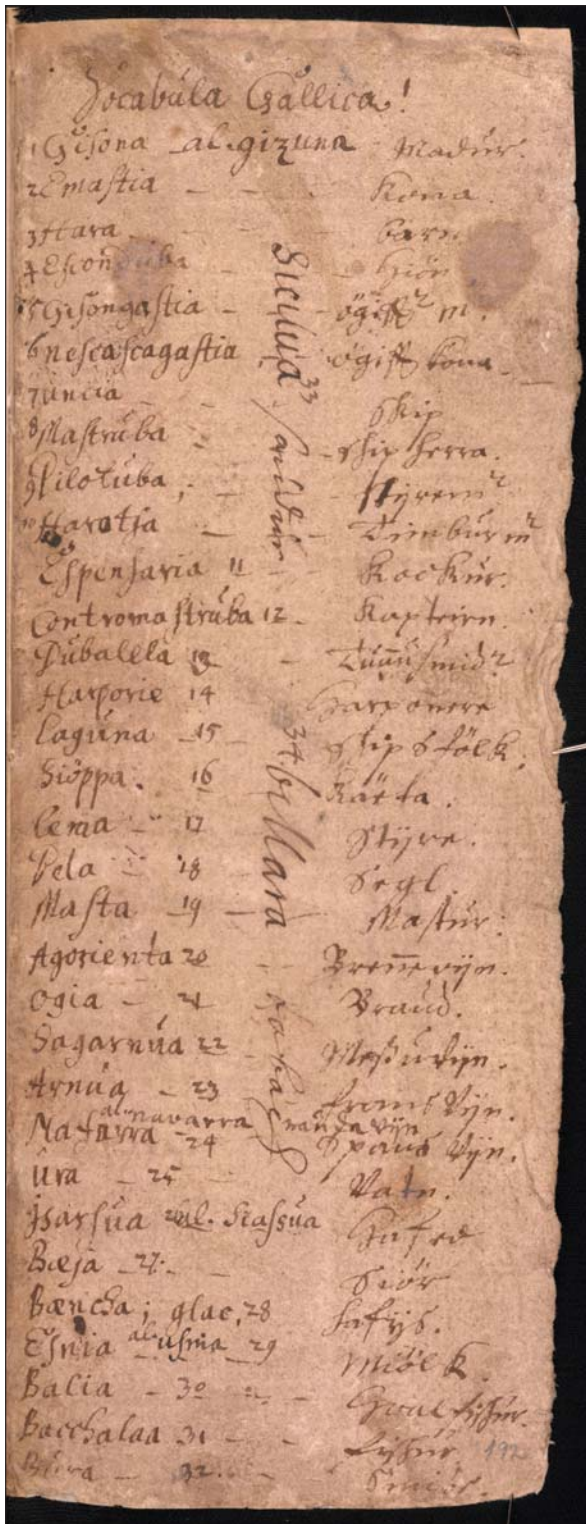 Vocabula Gallica!
1 Gisona al. gizuna Madur.
2 Emastia - - - Kona.
3 Hara - - - barn
4 Esconduba - -
5 Gisongastia - - ögifft m.
6 nescascagastia ögift kona
7 uncia - - Skip
8 Mastruba - - skip herra.
9 Pilotuba; - - Styrem
10 Harotsa - - Timbur m
Espensaria 11 - - Kockur.
Contromastruba 12 - Kapteirn.
Dubalela 13 -
Harporie 14 Harponere
Laguna - 15 - Skips fólk;
Sióppa: 16 -
Lema - 17 Styre.
Bela - 18 - Segl.
Masta - 19 - - Mastur:
Agorienta 20 - Brennevijn.
Ogia - 21 - Braud.
Sagarnua 22 - Messuvijn.
Arnua - 23 frans Vijn.
Nafarra al. navarra - 24 Spans Vijn.
Ura - 25 - Vatn.
Jsarsua 26 al. Scassua
Bæja - 27. - Siór
Bæncha; glac, 28 hafijs.
Esnia al. usnia 29 Miólk
Balia - 30 - Hvalfiskur.
Bacchalaa 31 - - fiskur
32. - Smiör.
33 Sandur
34 billara
192